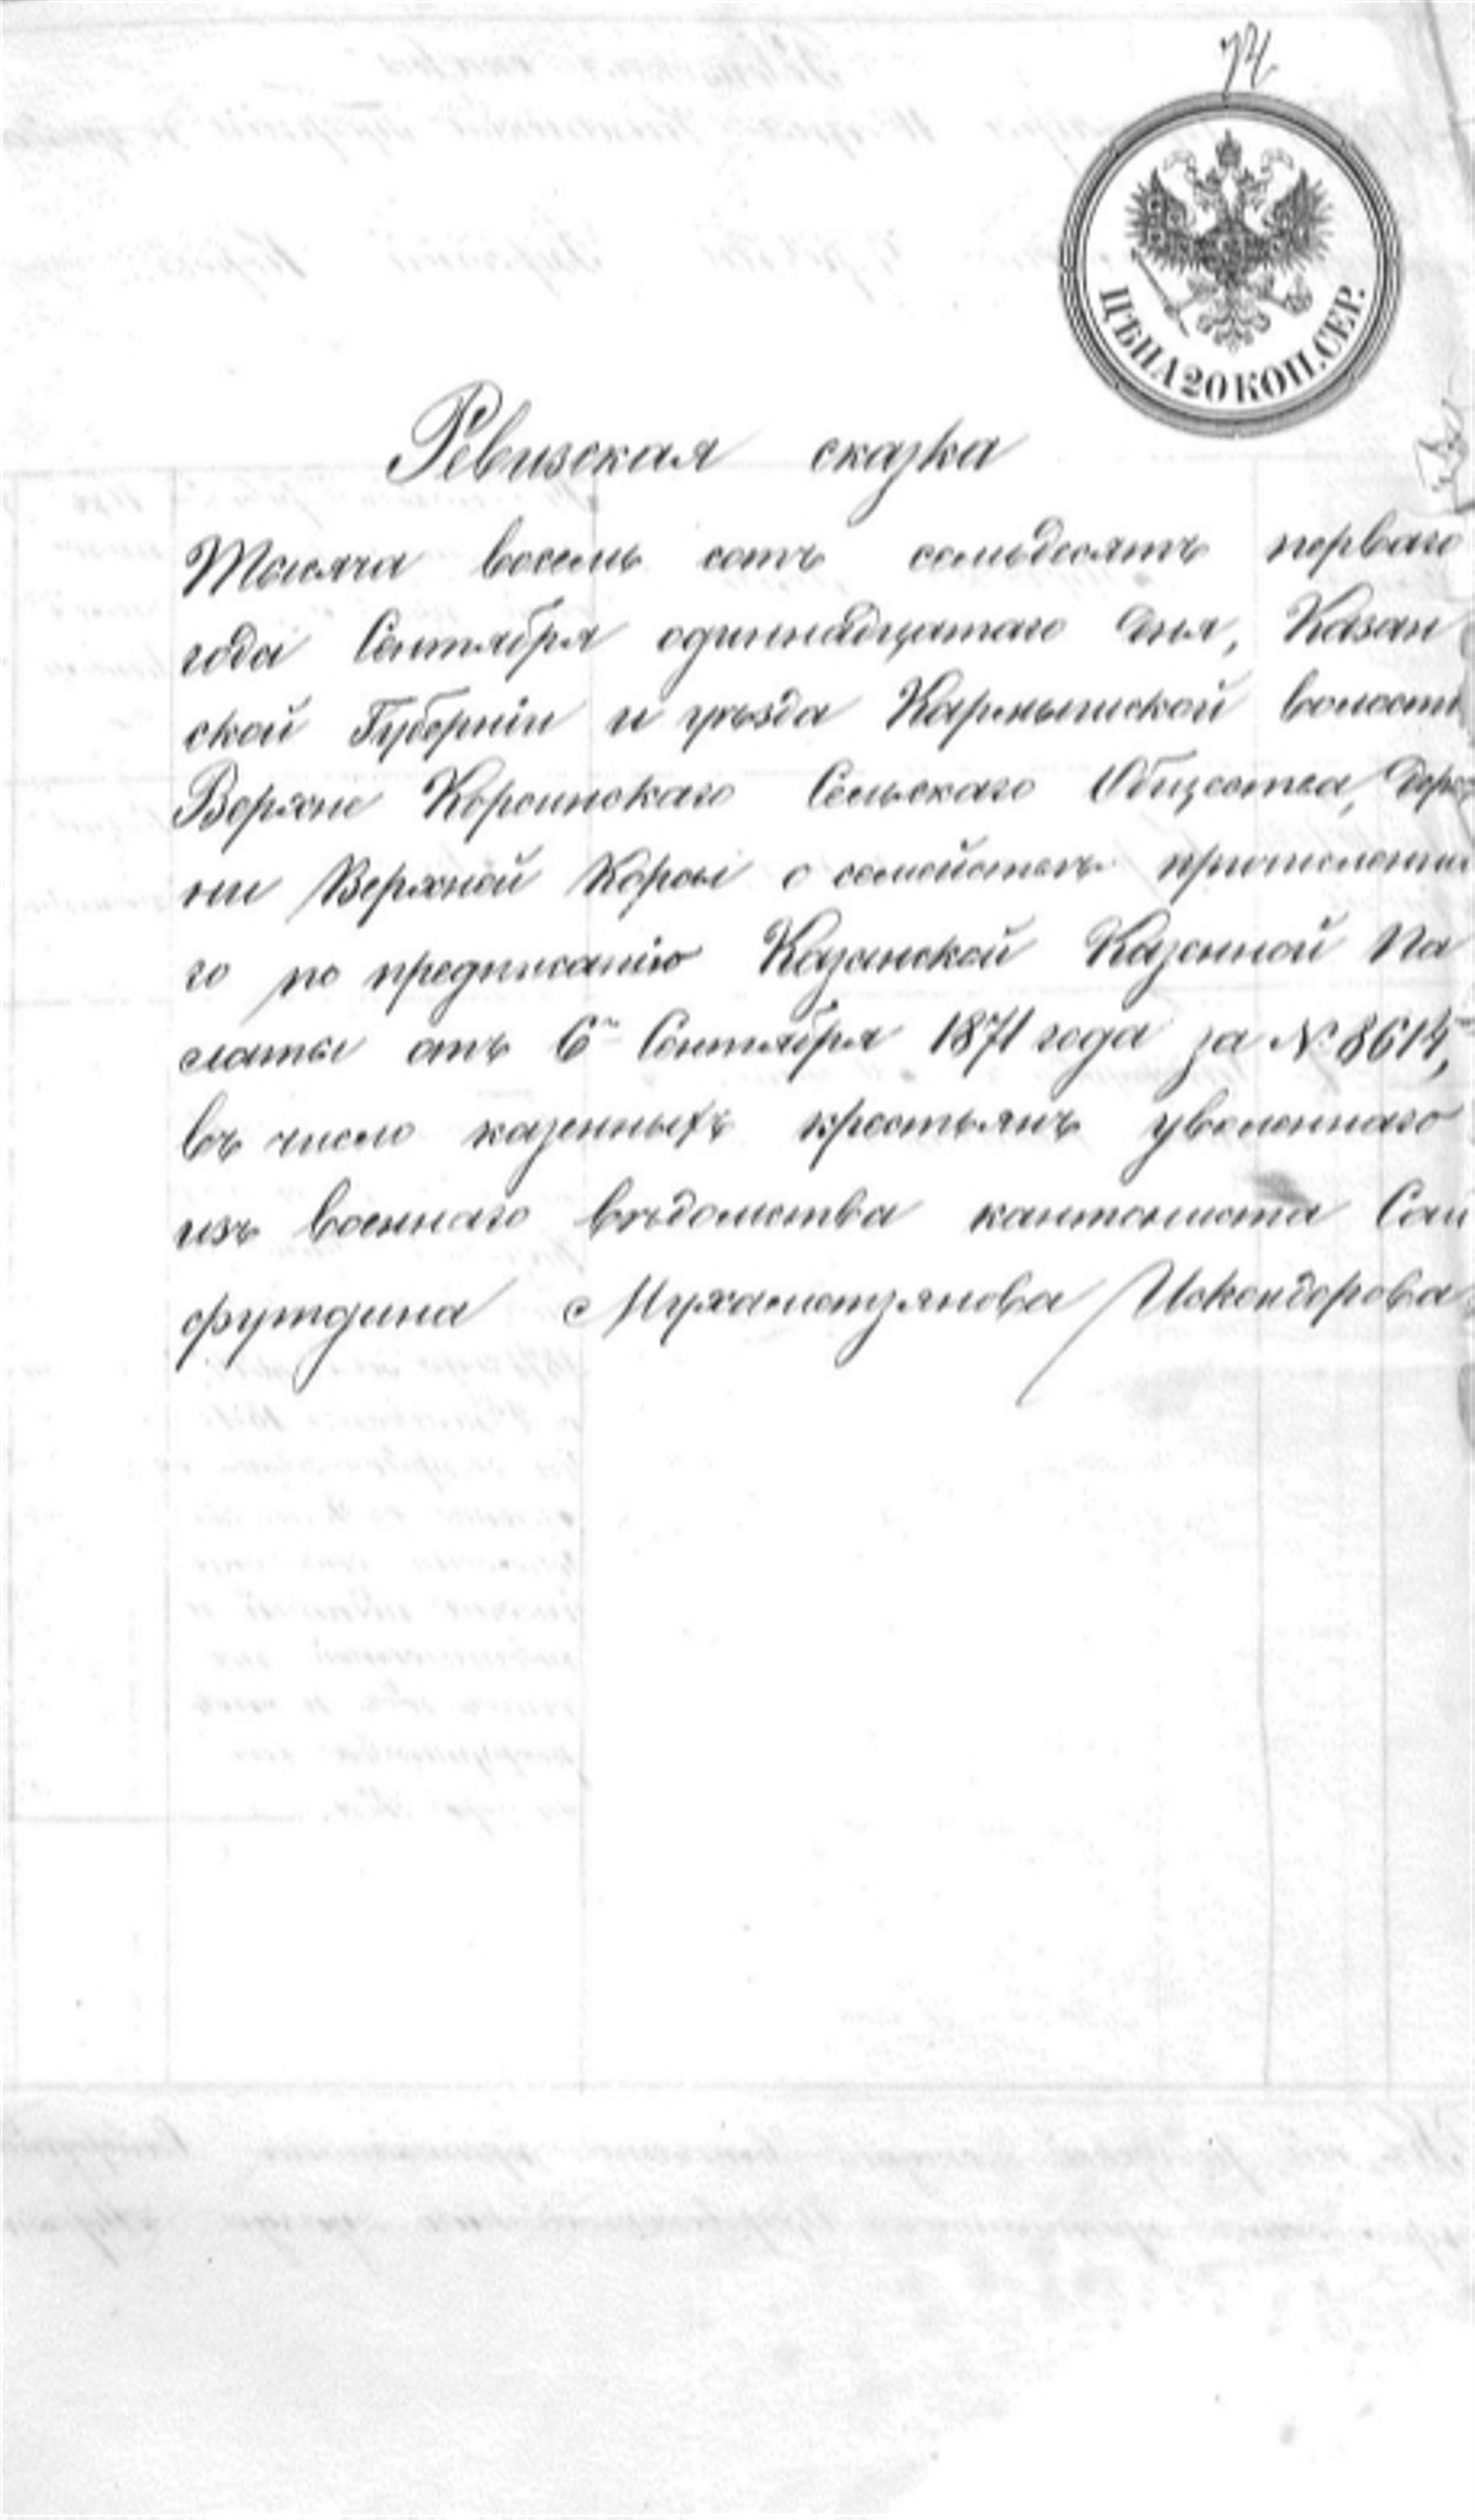 74
ЦѢНА 20 КОП. СЕР.
Ревизская сказка
Тысяча восемь сотъ семьдесятъ перваго
года Сентября одиннадцатаго дня, Казан
ской Губерніи и уѣзда Кармышской волости
Верхне Корсинскаго Сельскаго Общества, дерев
ни Верхней Корсы о семействѣ причисленна
го по предписанію Казанской Казенной Па
латы отъ 6го Сентября 1871 года за № 8614,
въ число казенныхъ крестьянъ уволеннаго
изъ военнаго вѣдомства кантониста Сай
футдина Мухаметзянова Искендерова